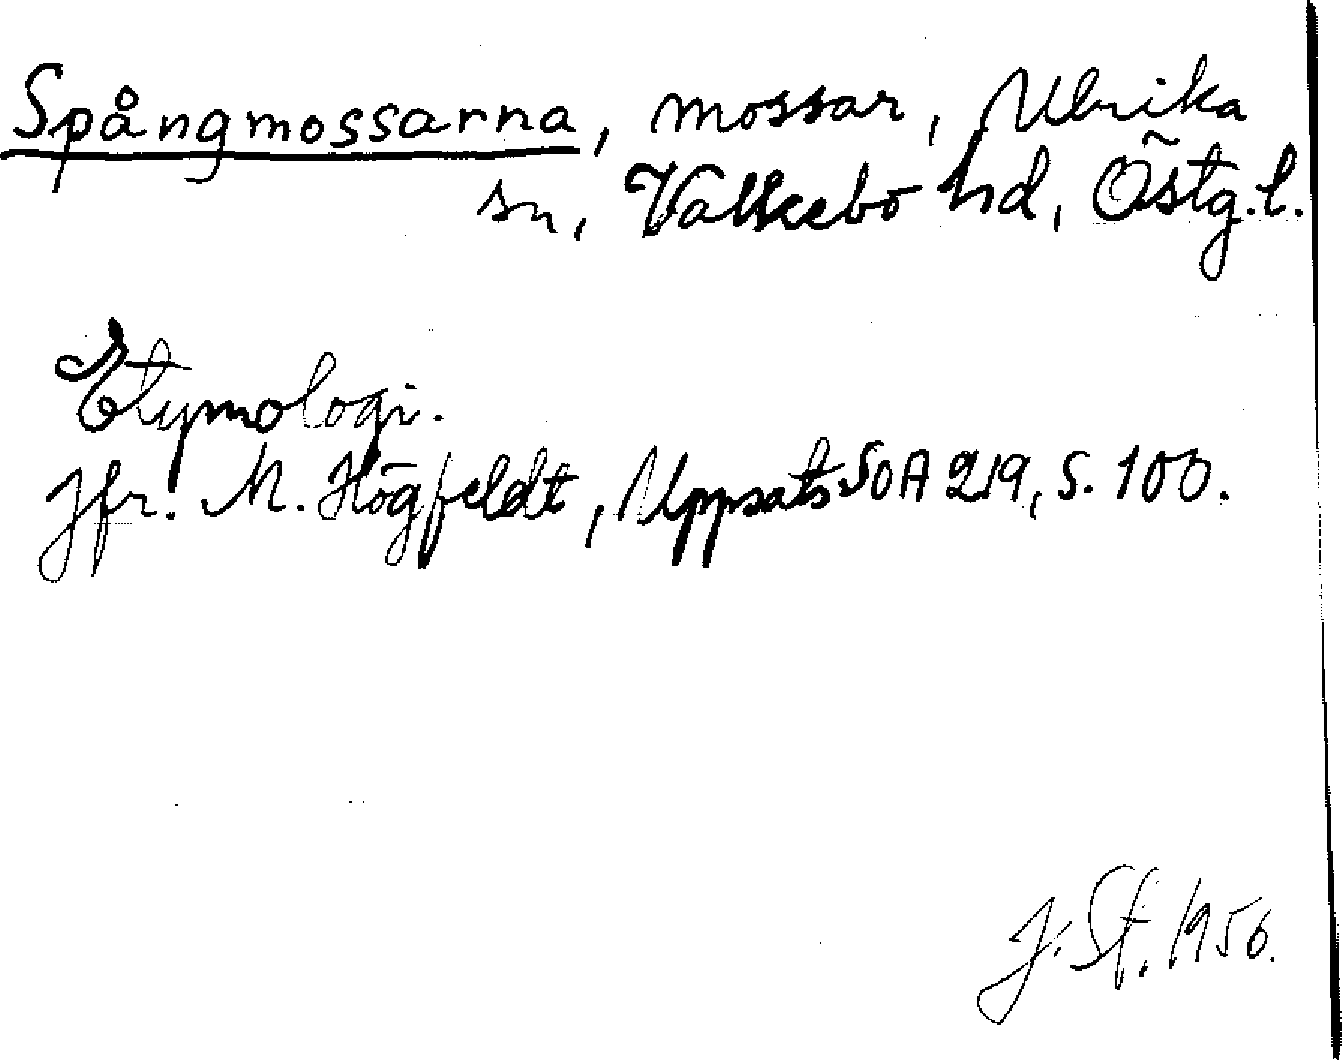 Spångmossarna, mossar, Ulrika
sn, Valkebo hd, Östg.l.
Etymologi.
Jfr. M. Högfeldt, Uppsats SOA 219, s. 100.
J. St. 1956.